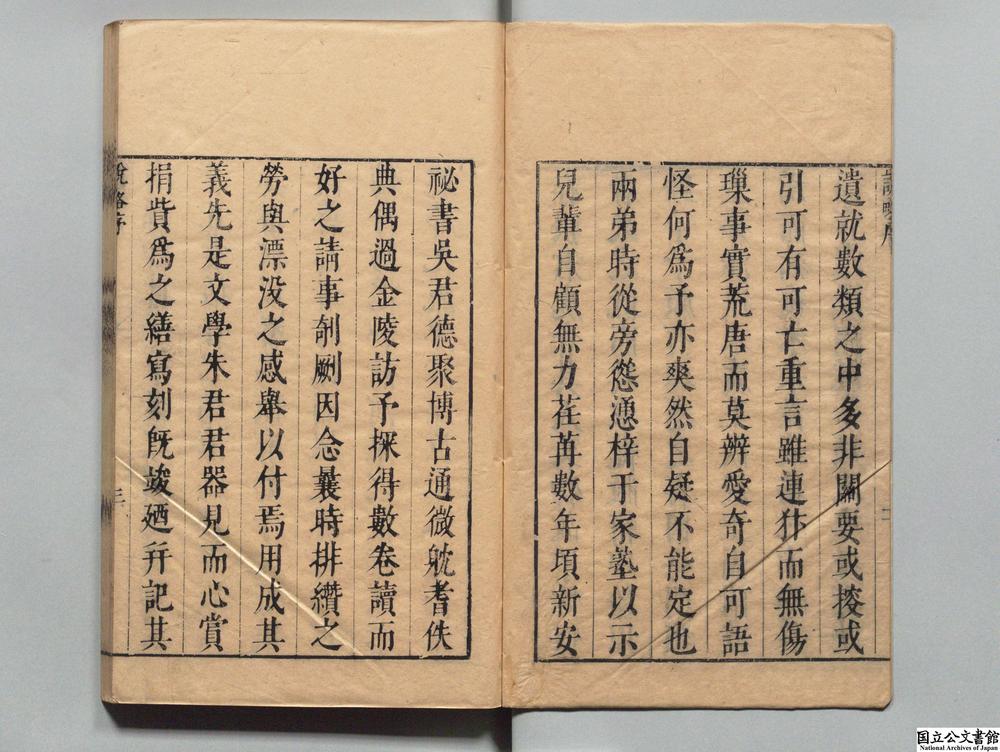 遺就數類之中多非關要或按或
引可有可亡重言雖連犿而無傷
璅事實荒唐而莫辨愛奇自可語
怪何爲予亦爽然自疑不能定也
兩弟時從旁慫慂梓于家塾以示
兒輩自顧無力荏苒數年頃新安
二
祕書吳君德聚博古通微躭耆佚
典偶過金陵訪予探得數卷讀而
好之請事剞劂因念曩時排纘之
勞與漂没之感舉以付焉用成其
義先是文學朱君君器見而心賞
捐貲爲之繕寫刻旣竣廼幷記其
說略序
三
国立公文書館
National Archives of Japan